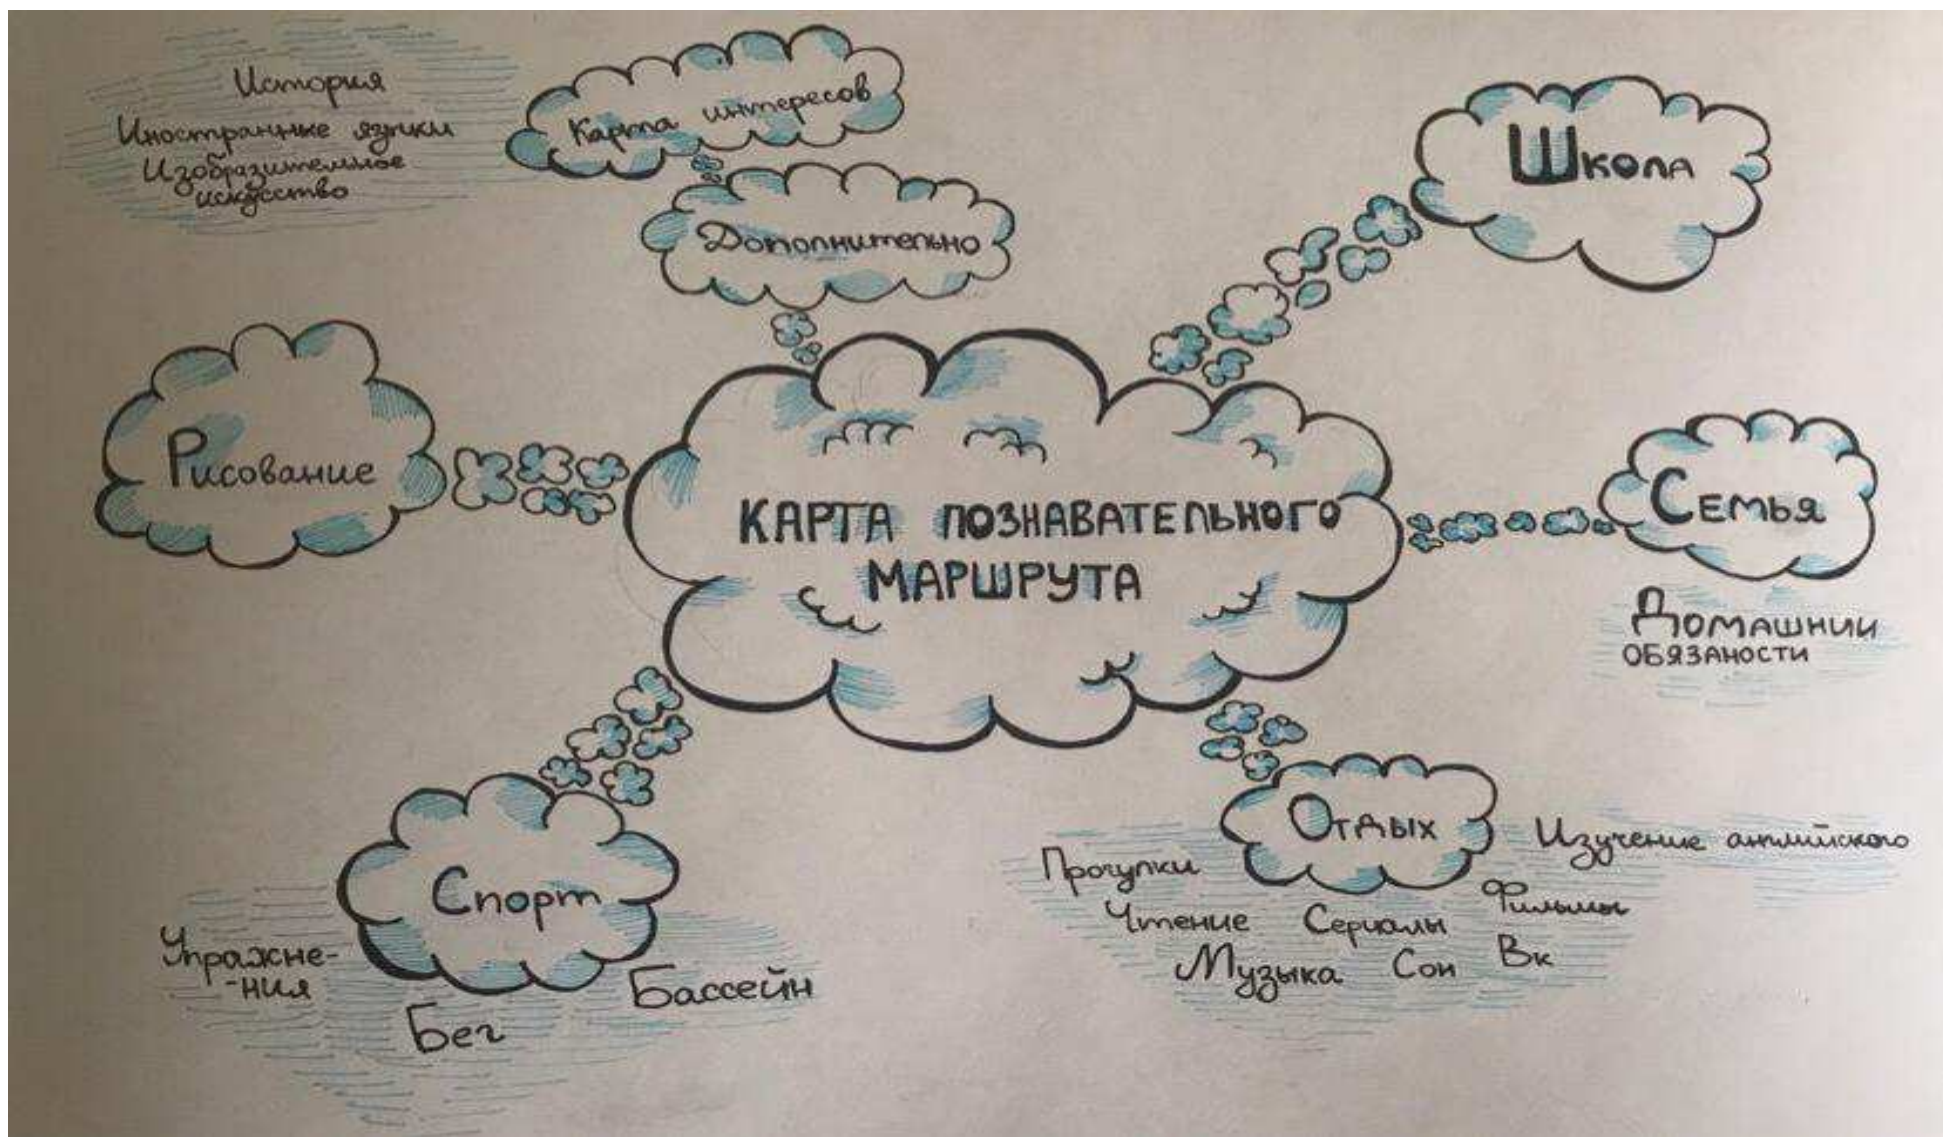 История
Иностранные языки
Изобразительное
искусство
Карта интересов
Дополнительно
Школа
Рисование
КАРТА ПОЗНАВАТЕЛЬНОГО
МАРШРУТА
Семья
Домашнии
обязаности
Спорт
Упражне-
-ния
Бег
Бассейн
Отдых
Прогулки
Изучение английского
Чтение
Сериалы
Фильмы
Музыка
Сон
Вк